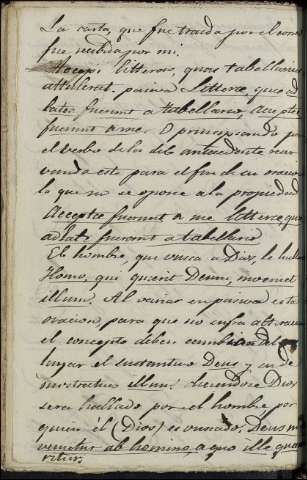 La carta, que fue traida por el correo
fue recibida por mi.
Accepi litteras, quas tabellarius
attulerat, pasiva Litteræ, quæ ad
latæ fuerunt a tabellario, acceptæ
fuerunt a me. O principiando por
el verbo de la del antecedente reser
vando este para el fin de su oracion
lo que no se opone a la propiedad
Acceptæ fuerunt a me litteræ quæ
adlatæ fuerunt a tabellario
El hombre, que busca a Dios, le halla
Homo, qui quærit Deum, invenit
illum. Al variar en pasiva esta
oracion para que no sufra alteracion
el concepto deben cambiar de
lugar el sustantivo Deus, y un de
mostrativo illum: diciendose Dios
sera hallado por el hombre por
quien él (Dios) es buscado, Deus in
venietur ab homine a quo ille quæ
ritur.